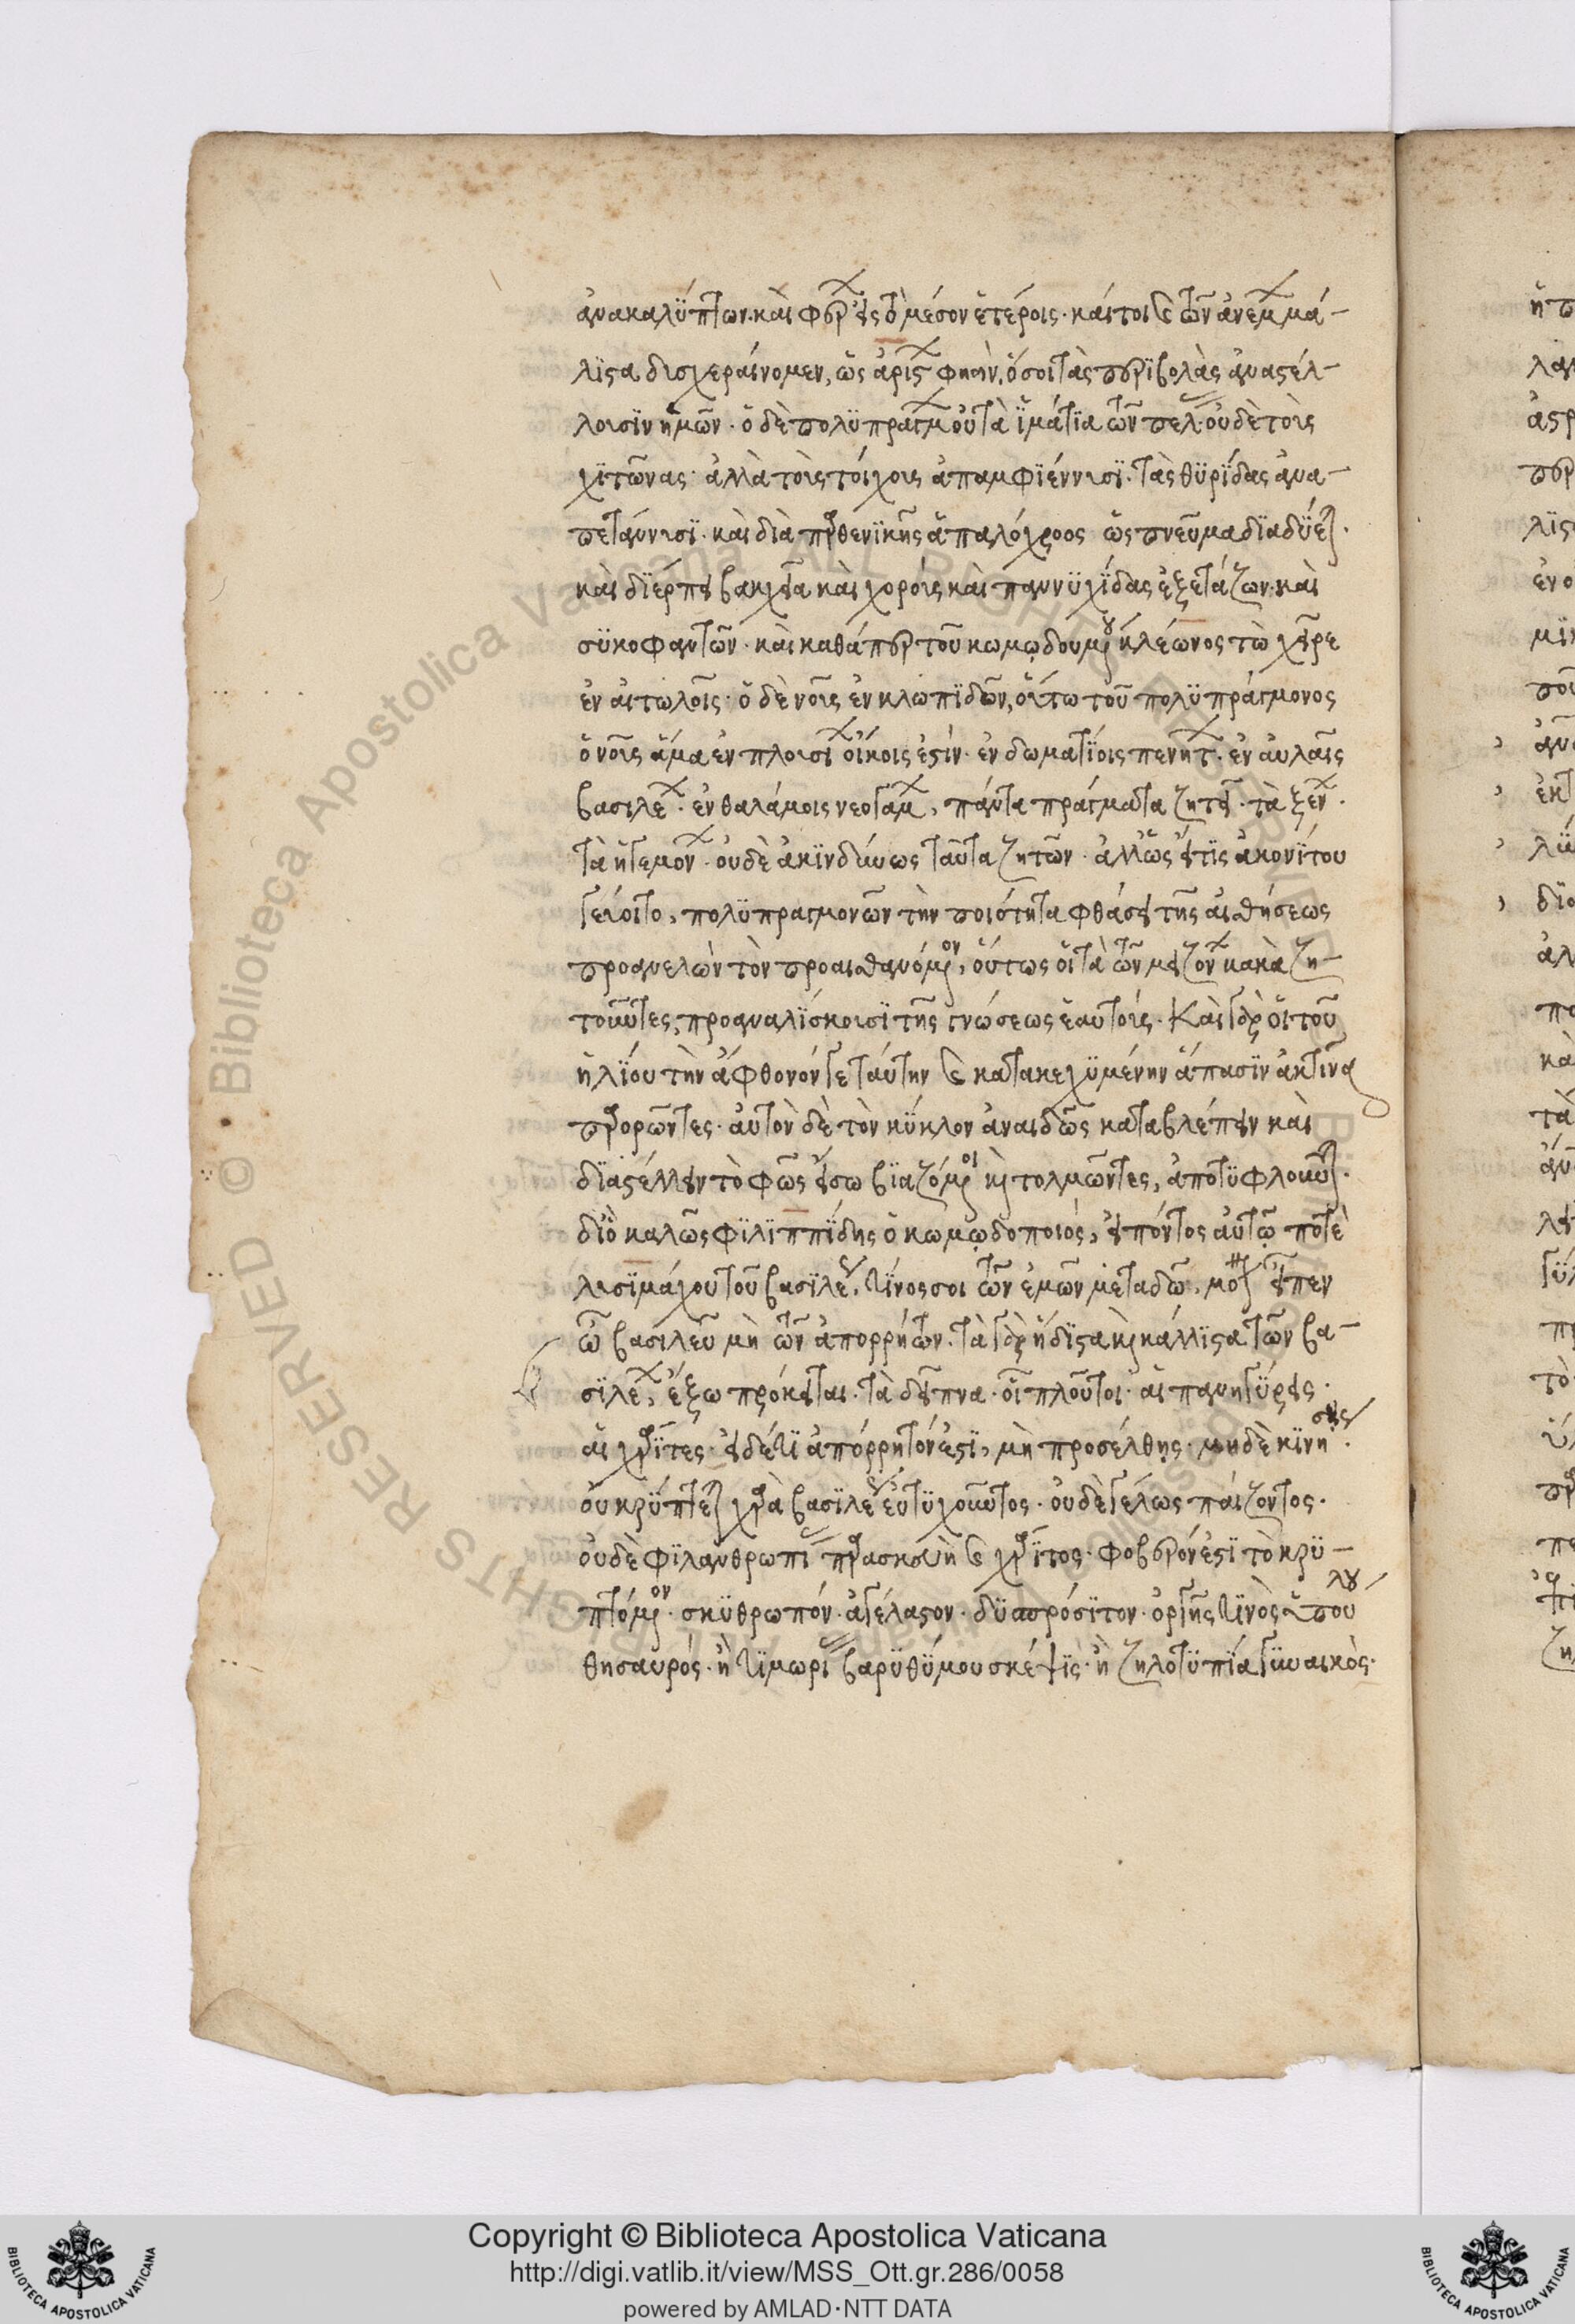 ἀνακαλύπτων. καὶ φέρων εἰς τὸ μέσον ἑτέροις. καίτοι καὶ τῶν ἀνέμων μά-
λιστα δυσχεραίνομεν, ὡς ἀρίστων φησὶν, ὅσοι τὰς περιβολὰς ἀναστέλ-
λουσιν ἡμῶν. ὁ δὲ πολυπράγμων οὐ τὰ ἱμάτια τῶν πέλας οὐδὲ τοὺς
χιτῶνας. ἀλλὰ τοὺς τοίχους ἀπαμφιέννυσι. τὰς θυρίδας ἀνα-
πετάννυσι. καὶ διὰ παρθενικῆς ἁπαλόχροος ὡς πνεῦμα διαδύεται.
καὶ διέρπει βακχεῖα καὶ χοροὺς καὶ παννυχίδας ἐξετάζων. καὶ
συκοφαντῶν. καὶ καθάπερ τοῦ κωμῳδουμένου κλέωνος τὼ χεῖρε
ἐν αἰτωλοῖς. ὁ δὲ νοῦς ἐν κλωπιδῶν, οὕτω τοῦ πολυπράγμονος
ὁ νοῦς ἅμα ἐν πλουσίων οἴκοις ἐστὶν. ἐν δωματίοις πενήτων. ἐν αὐλαῖς
βασιλέων. ἐν θαλάμοις νεογάμων, πάντα πράγματα ζητεῖ. τὰ ξένων.
τὰ ἡγεμόνων. οὐδὲ ἀκινδύνως ταῦτα ζητῶν. ἀλλ' ὡς εἴ τις ἀκονίτου
γεύοιτο, πολυπραγμονῶν τὴν ποιότητα φθάσει τῆς αἰσθήσεως
προανελὼν τὸν προαισθανόμενον, οὕτως οἱ τὰ τῶν μειζόνων κακὰ ζη-
τοῦντες, προαναλίσκουσι τῆς γνώσεως ἑαυτοὺς. Καὶ γὰρ οἱ τοῦ
ἡλίου τὴν ἄφθονόν γε ταύτην καὶ κατακεχυμένην ἅπασιν ἀκτῖνα
παρορῶντες. αὐτὸν δὲ τὸν κύκλον ἀναιδῶς καταβλέπειν καὶ
διαστέλλειν τὸ φῶς εἴσω βιαζόμενοι καὶ τολμῶντες, ἀποτυφλοῦνται.
διὸ καλῶς φιλιππίδης ὁ κωμῳδοποιός, εἰπόντος αὐτῷ ποτὲ
λυσιμάχου τοῦ βασιλέως, τίνος σοι τῶν ἐμῶν μεταδῶ, μόνον εἶπεν
ὦ βασιλεῦ μὴ τῶν ἀπορρήτων. τὰ γὰρ ἥδιστα καὶ κάλλιστα τῶν βα-
σιλέων, ἔξω πρόκειται. τὰ δεῖπνα. οἱ πλοῦτοι. αἱ πανηγύρεις.
αἱ χάριτες. εἰ δέ τι ἀπόρρητόν ἐστι, μὴ προσέλθῃς. μηδὲ κινήσῃς.
οὐ κρύπτεται χαρὰ βασιλέως εὐτυχοῦντος. οὐδὲ γέλως παίζοντος.
οὐδὲ φιλανθρωπίας παρασκευὴ καὶ χάριτος. φοβερόν ἐστι τὸ κρυ-
πτόμενον. σκυθρωπόν. ἀγέλαστον. δυσπρόσιτον. ὀργῆς τινὸς ὑπούλου
θησαυρός. ἢ τιμωρίας βαρυθύμου σκέψις. ἢ ζηλοτυπία γυναικὸς.